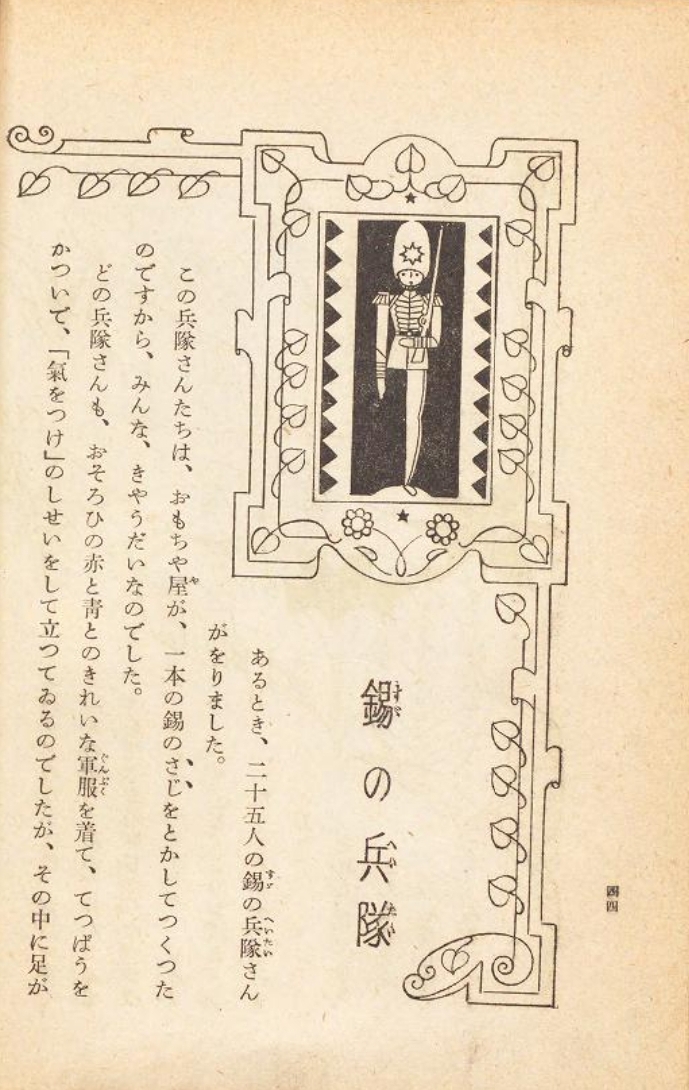 四四
錫の兵隊
あるとき、二十五人の錫の兵隊さん
がをりました。
この兵隊さんたちは、おもちや屋が、一本の錫のさじをとかしてつくつた
のですから、みんな、きやうだいなのでした。
どの兵隊さんも、おそろひの赤と靑とのきれいな軍服を着て、てつぱうを
かついで、「氣をつけ」のしせいをして立つてゐるのでしたが、その中に足が